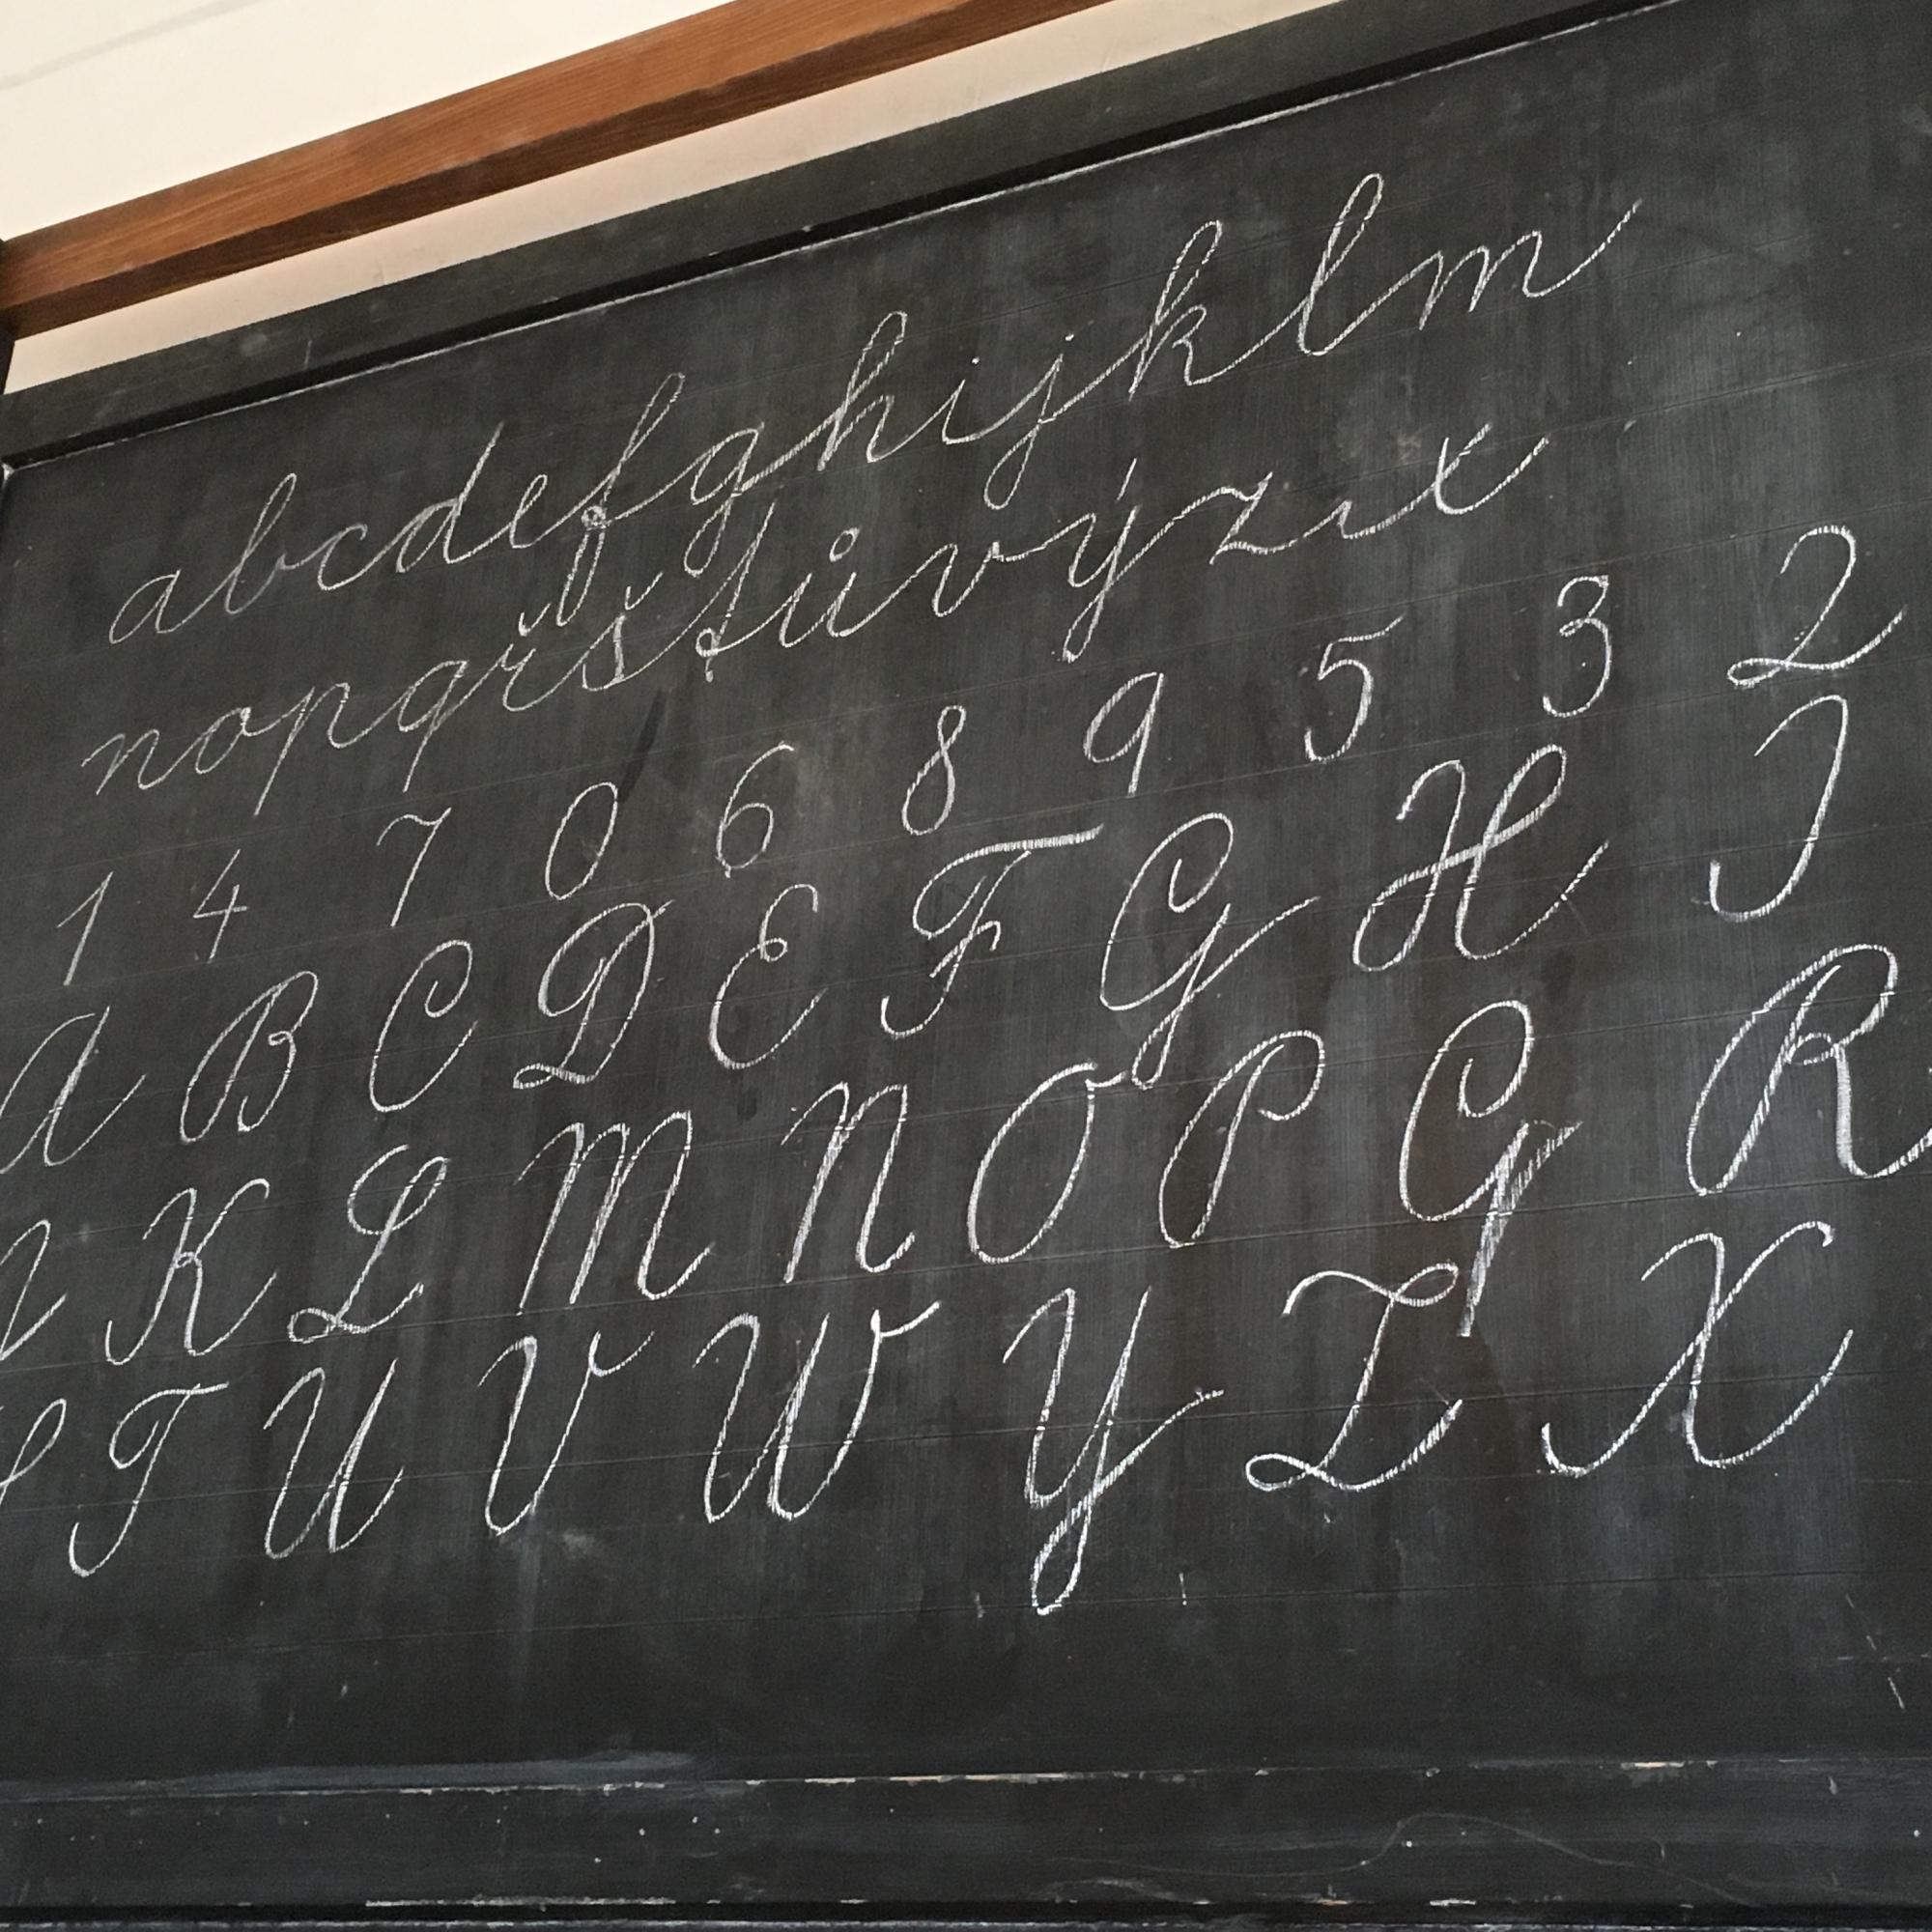 abcdefghijklm
nopqřštůvýzx
1 4 7 0 6 8 9 5 3 2
A B C D E F G H I
J K L M N O P Q R
S T U V W Y Z X